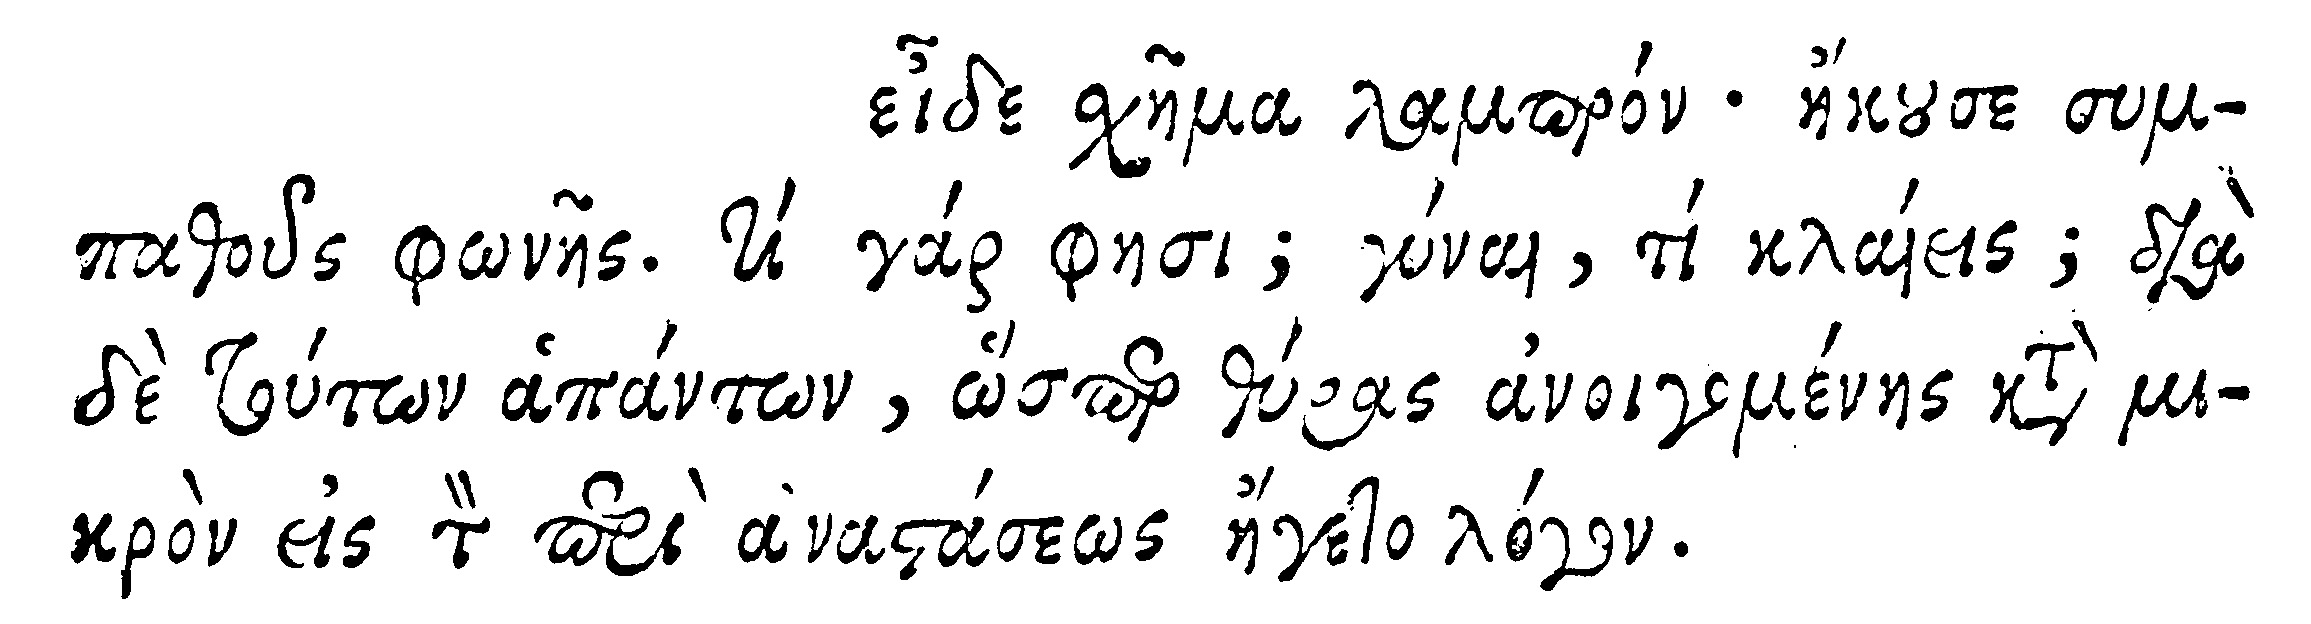 εἶδε σχῆμα λαμπρόν · ἤκουσε συμ-
παθοῦς φωνῆς. τί γάρ φησι; γύναι, τί κλαίεις; διὰ
δὲ τούτων ἁπάντων, ὥσπερ θύρας ἀνοιγομένης κατὰ μι-
κρὸν εἰς τὸν περὶ ἀναστάσεως ἤγετο λόγον.